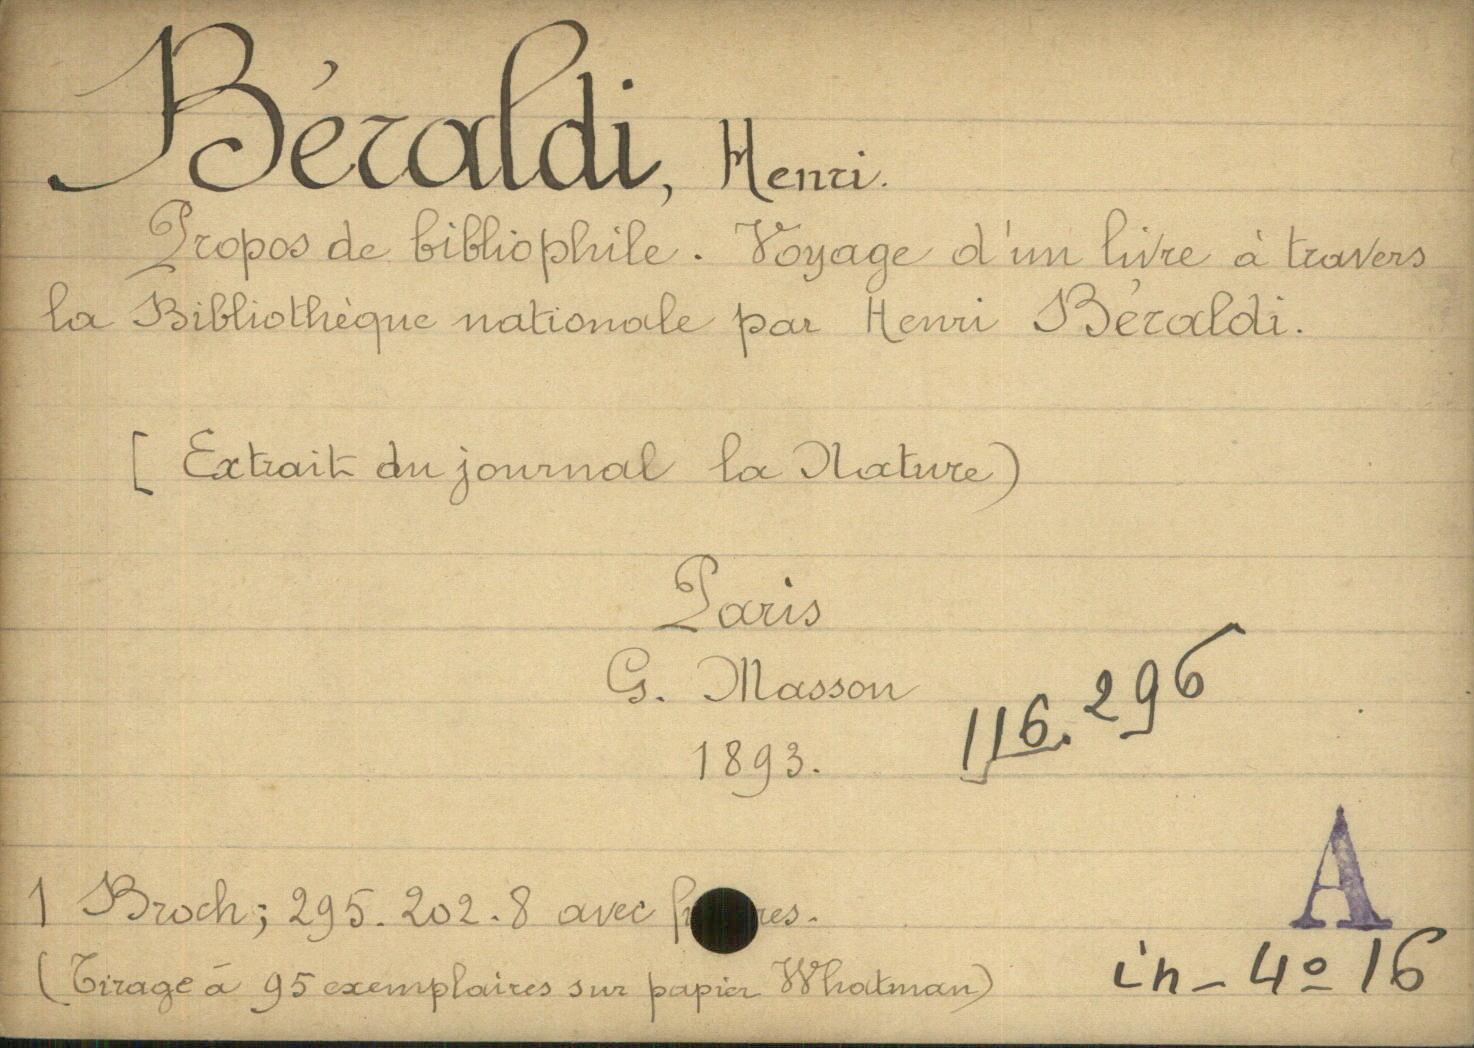 Béraldi, Henri.
Propos de bibliophile. Voyage d'un livre à travers
la Bibliothèque nationale par Henri Béraldi.
[ Extrait du journal la Nature)
Paris
G. Masson
1893.
116.296
A
1 Broch; 295. 202. 8 avec
(Tirage à 95 exemplaires sur papier Whatman)
in-4º 16